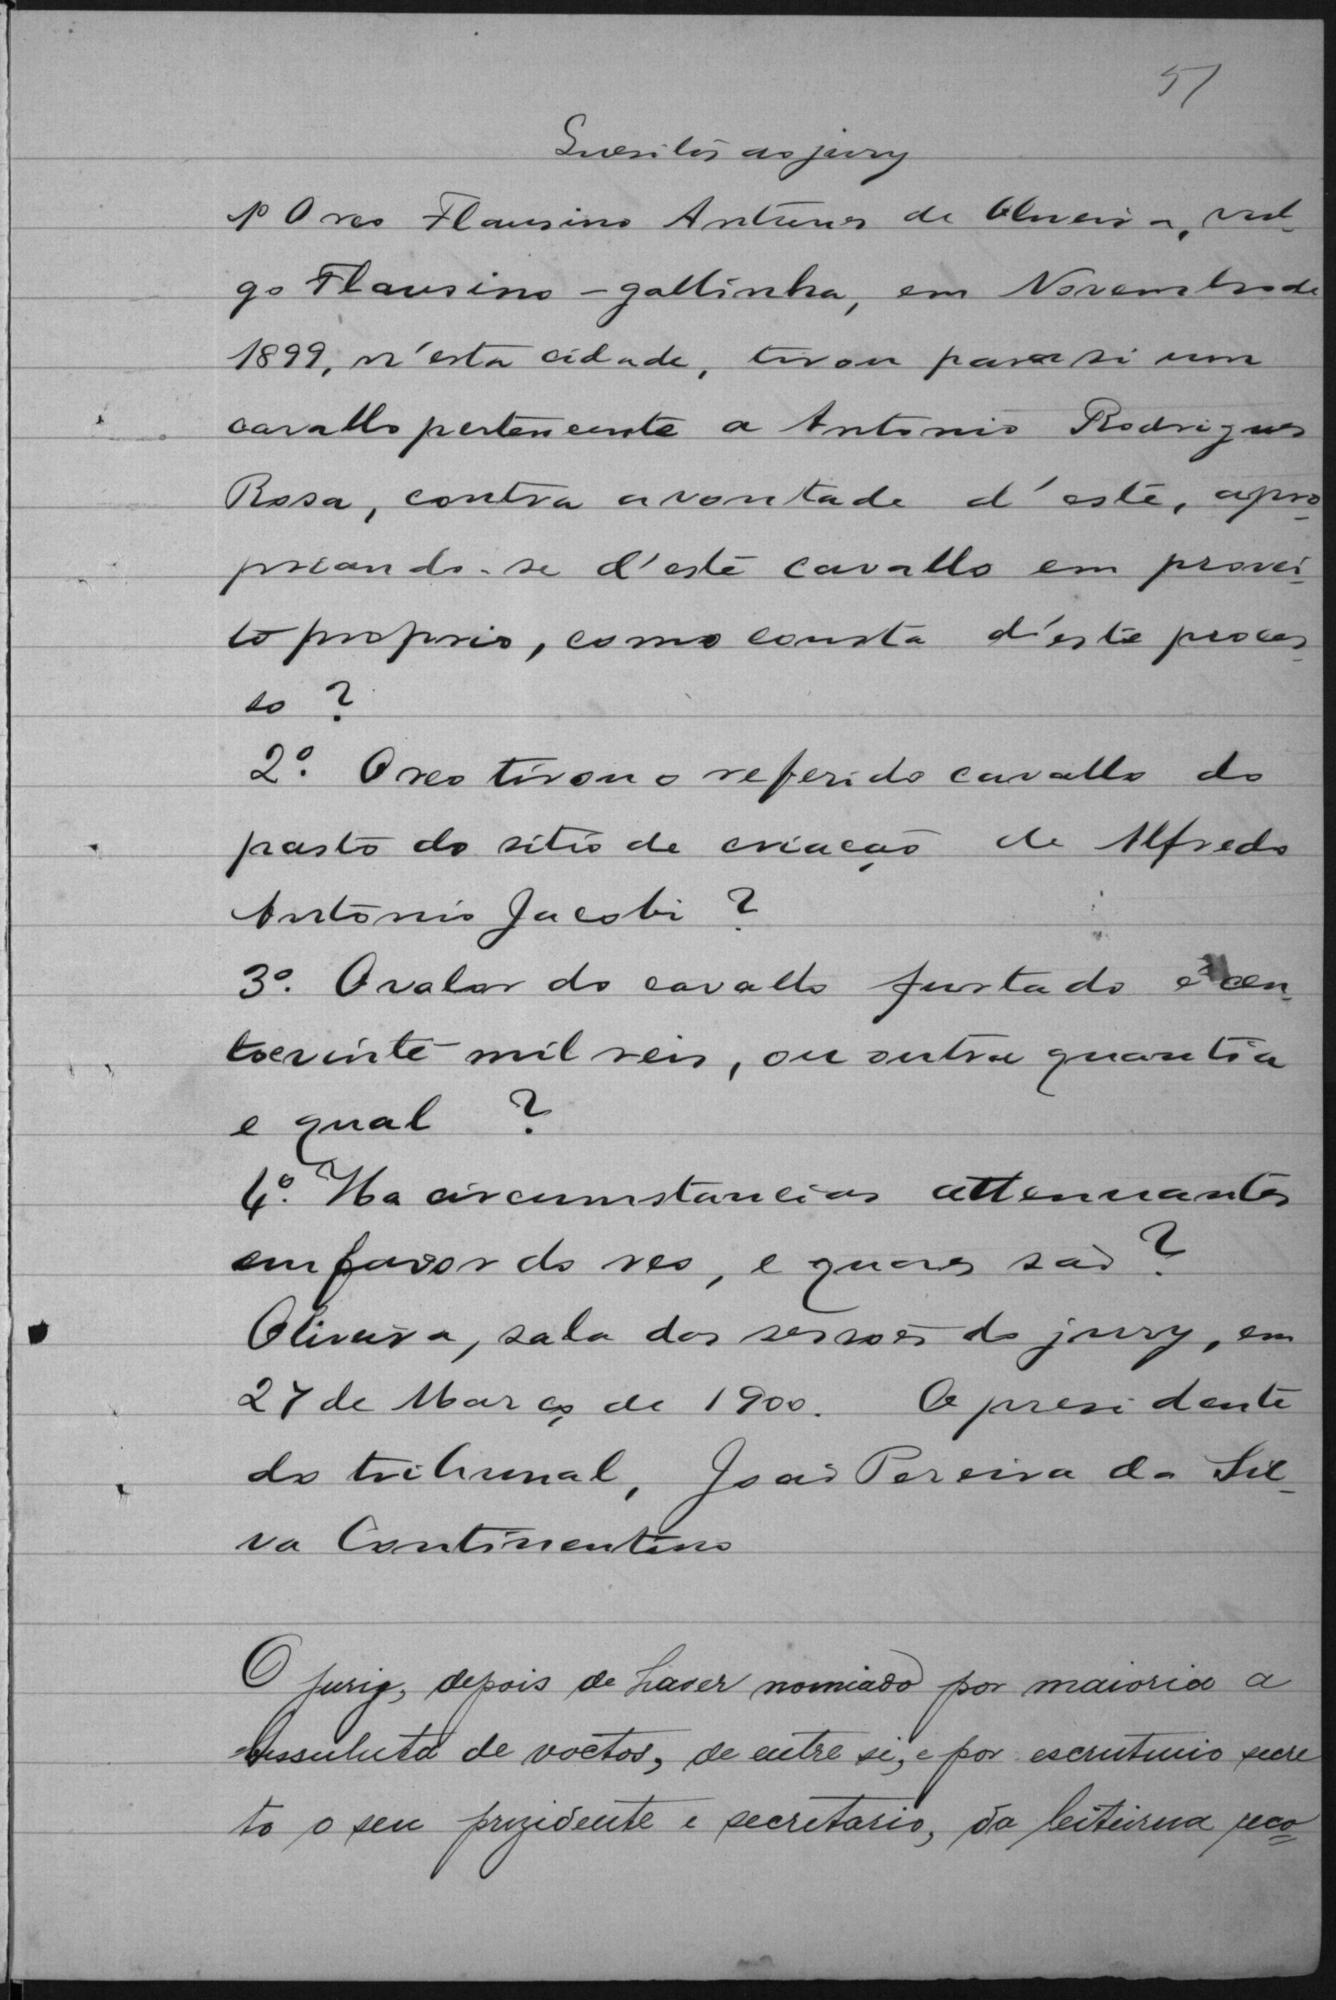 51
Quesitos ao jury
1º O reo Flausino Antunes de Oliveira, vul-
go Flausino-gallinha, em Novembro de
1899, n'esta cidade, tirou para si um
cavallo pertencente a Antonio Rodrigues
Rosa, contra a vontade d'este, apro-
priando-se d'este cavallo em provei-
to proprio, como consta d'este proces-
so ?
2º. O reo tirou o referido cavallo do
pasto do sitio de criação de Alfredo
Antonio Jacobi ?
3º. O valor do cavallo furtado é cen-
to e vinte mil reis, ou outra quantia
e qual ?
4º. Ha circumstancias attenuantes
em favor do reo, e quaes são ?
Oliveira, sala das sessões do jury, em
27 de Março de 1900. O presidente
do tribunal, João Pereira da Sil-
va Continentino
O jury, depois de haver nomiado por maioria a
bssuluta de voctos, de entre si, e por escrutinio secre
to o seu prezidente e secretario, da leitura